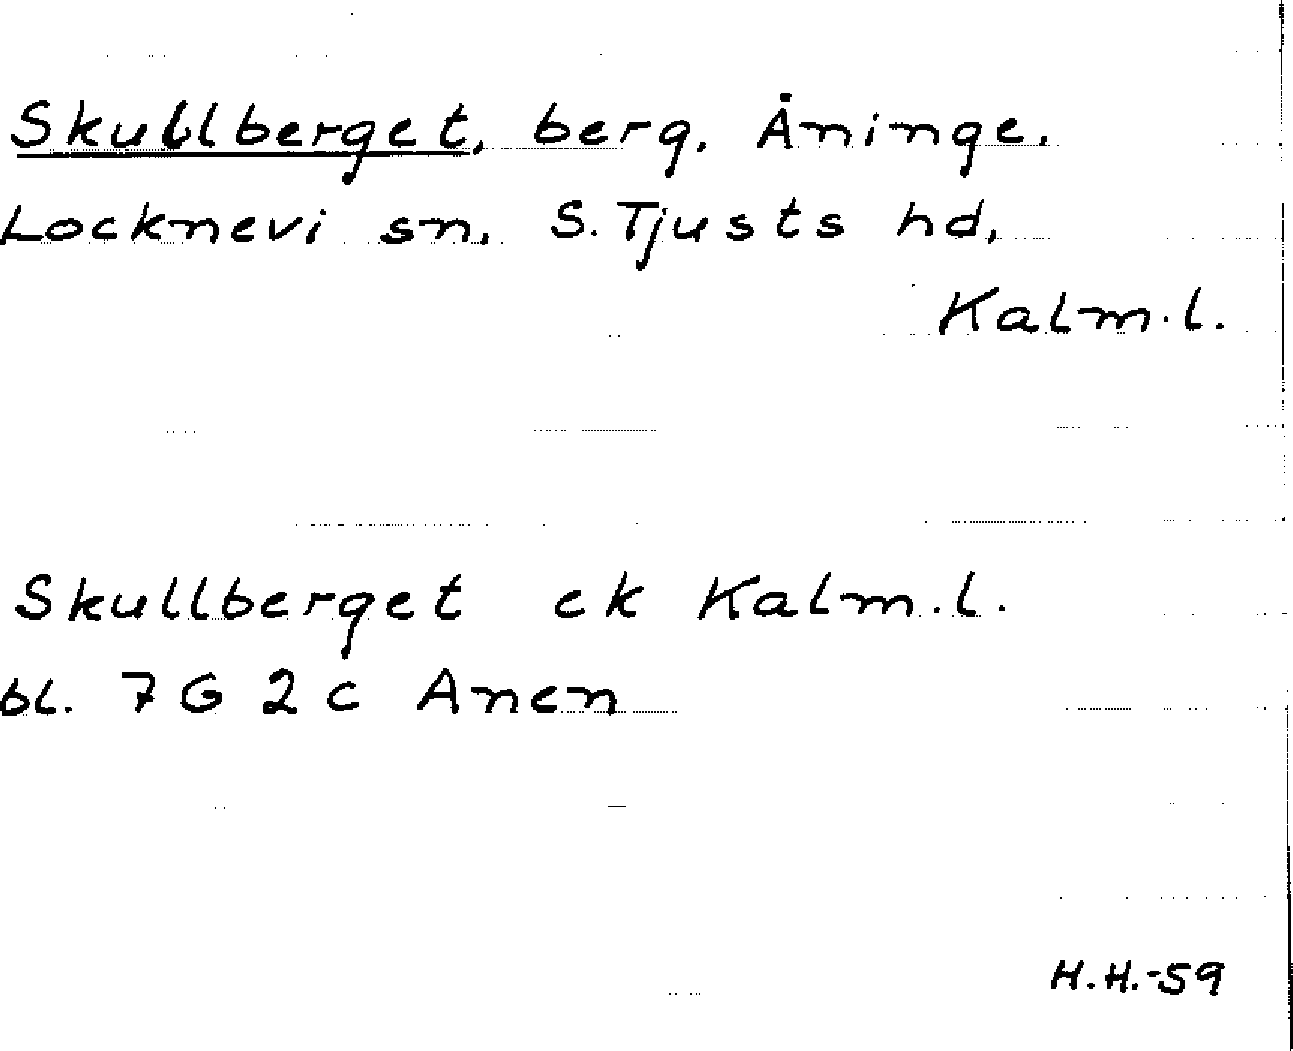 Skullberget, berg, Åninge,
Locknevi sn, S. Tjusts hd,
Kalm.l.
Skullberget ek Kalm.l.
bl. 7 G 2 c Anen
H.H.-59